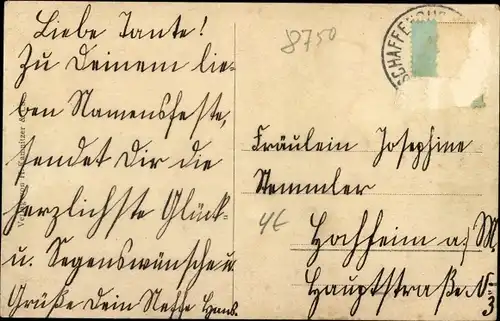 Liebe Tante!
Zu Deinem lie-
ben Namensfeste,
sendet Dir die
herzlichste Glück-
u. Segenswünsche u.
Grüße Dein Neffe Hans.
8750
SCHAFFENBURG
Fräulein Josephine
Stemmler
4€
Hochheim a/M
Hauptstraße Nr. 3